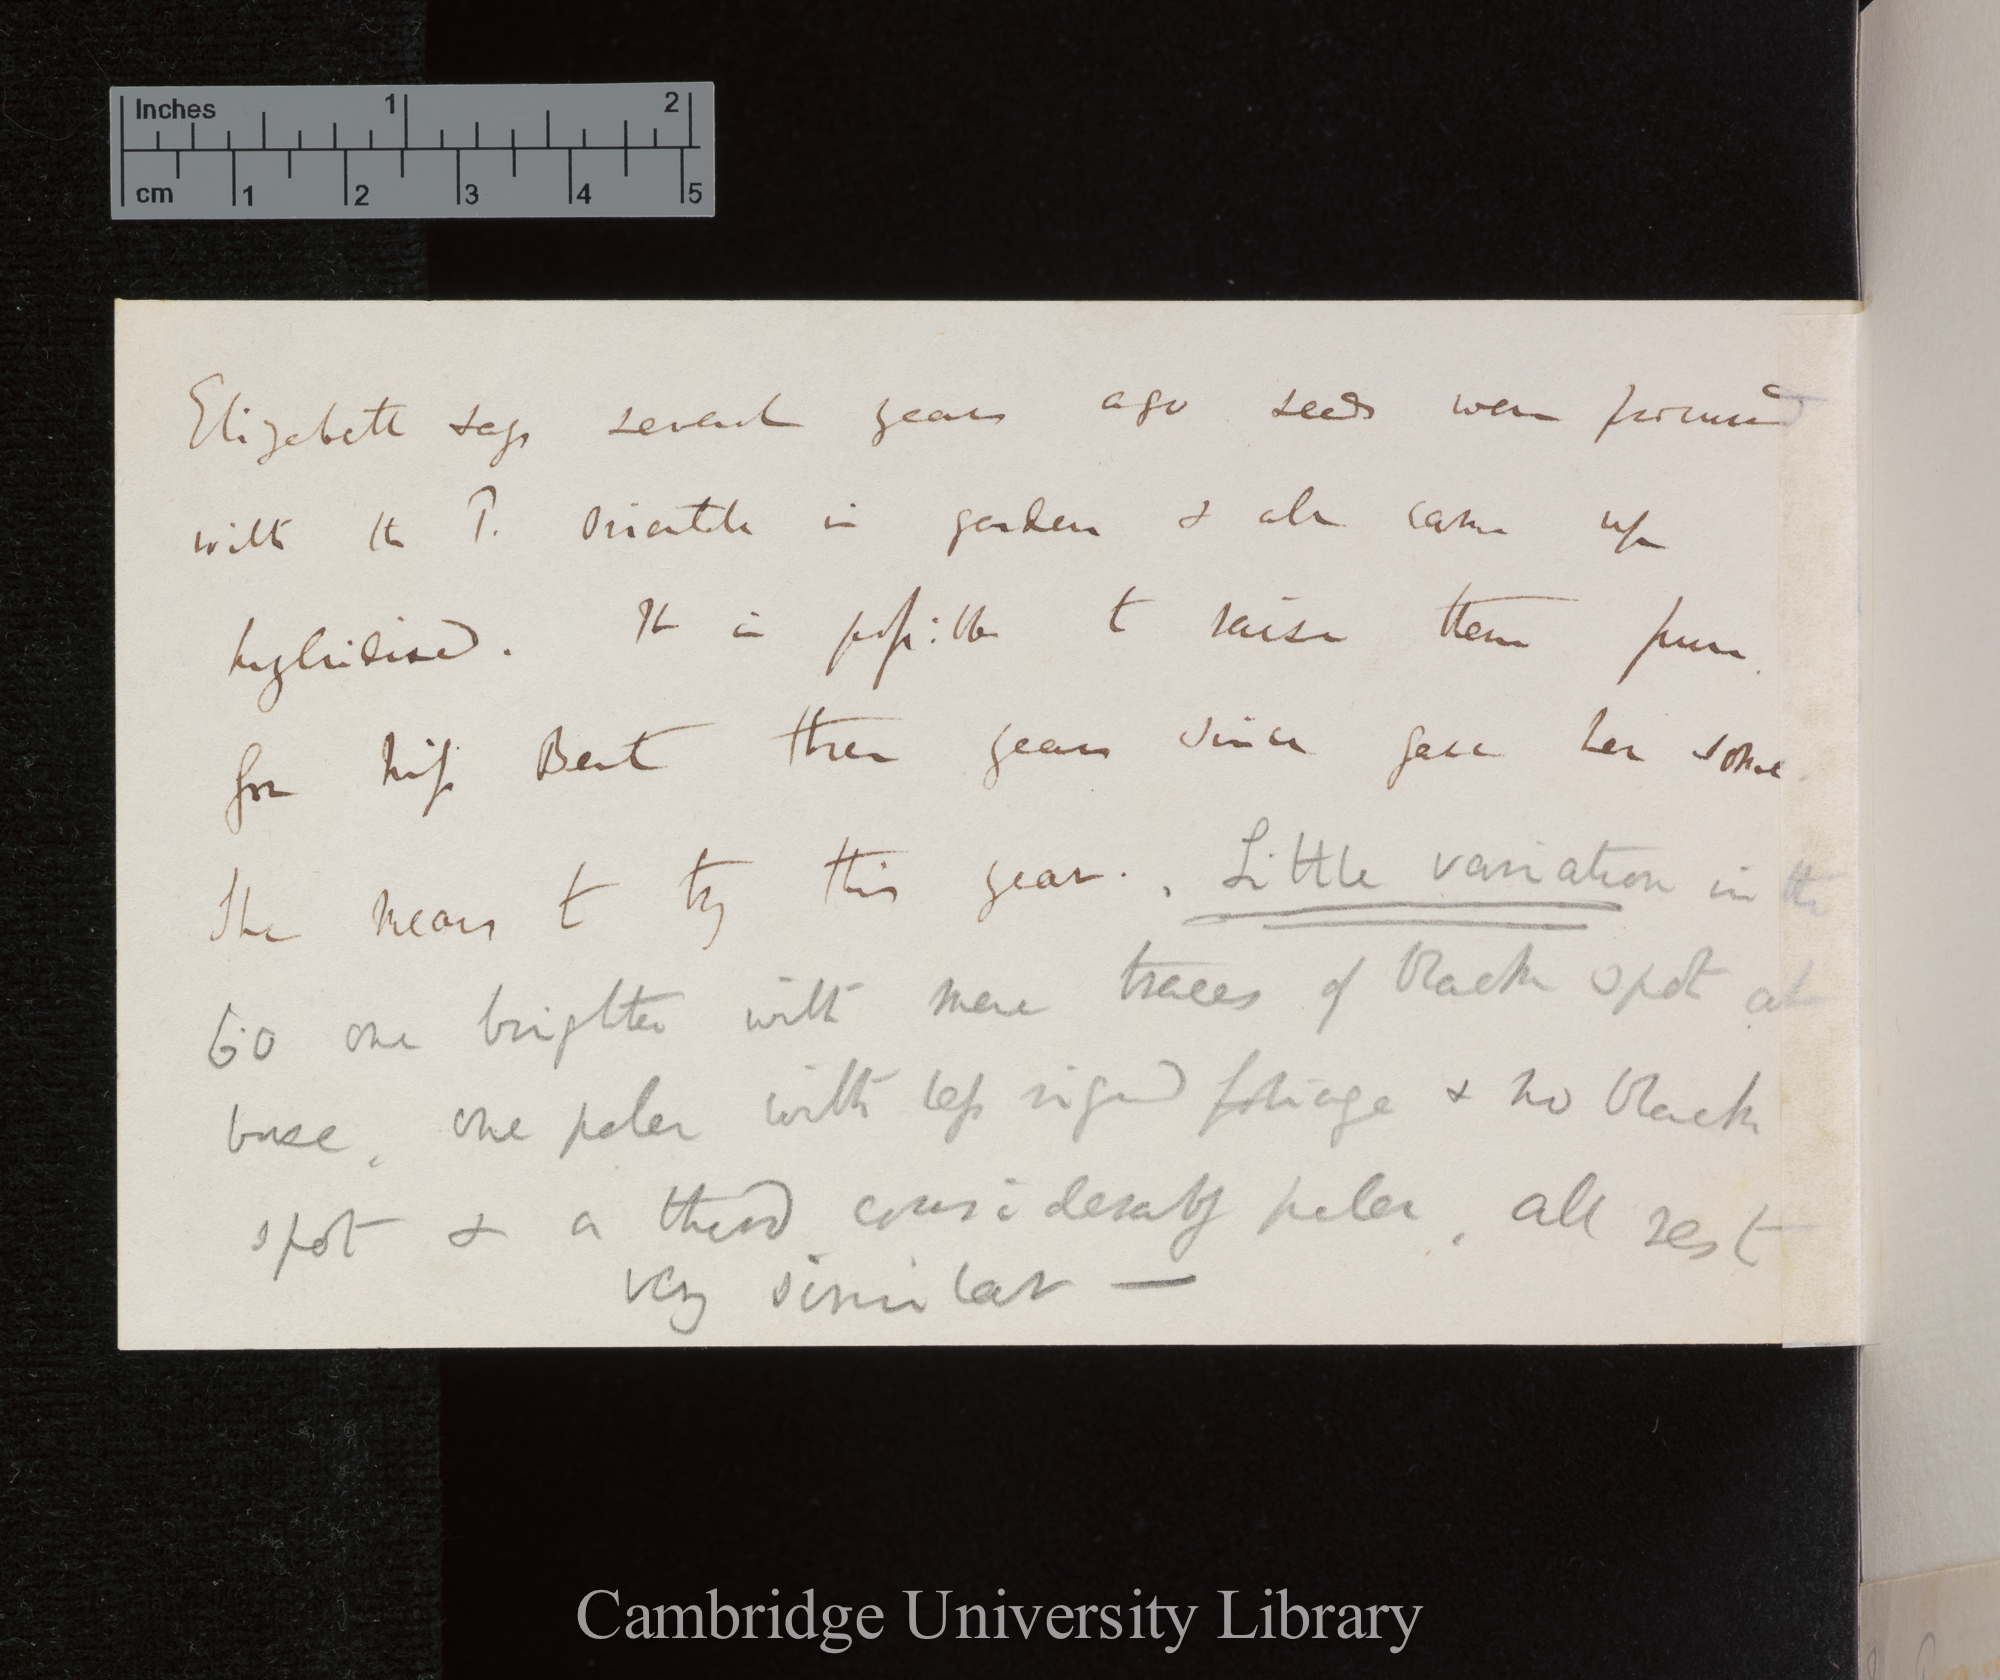 Inches 1 2
cm 1 2 3 4 5
Elizabeth says several years ago seeds were
with the P. orientale in garden & all came up
hybridised. It is possible to raise them pure.
for Miss Bent three years since gave her some
She means to try this year. Little variation in the
60 one brighter with mere traces of black spot at
base, one paler with less rigid foliage & no black
spot & a third considerably paler, all rest
very similar —
Cambridge University Library